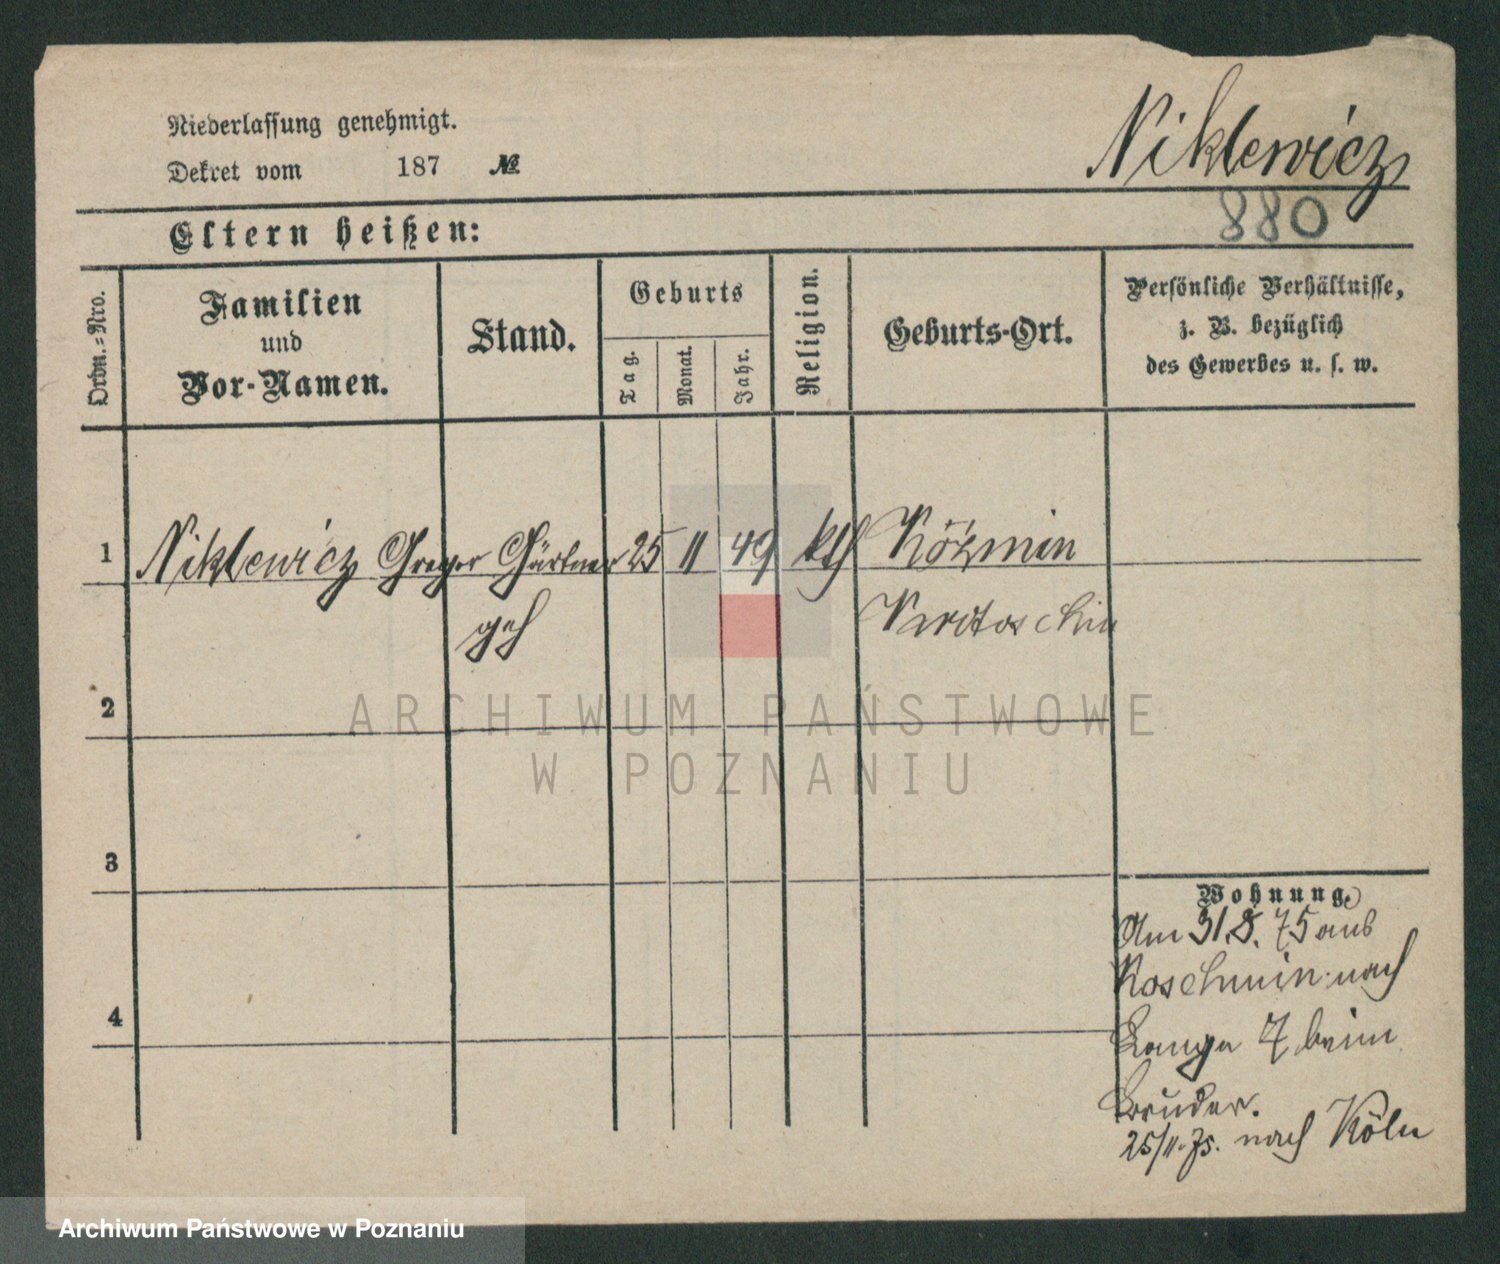 Niederlassung genehmigt.
Dekret vom 187 №
Niklewicz
880
Eltern heißen:
Ordn.=Nro.
Familien
und
Vor-Namen.
Stand.
Geburts
Tag.
Monat.
Jahr.
Religion.
Geburts-Ort.
Persönliche Verhältnisse,
z. B. bezüglich
des Gewerbes u. s. w.
1 Niklewicz Gregor Gärtner 25 11 49 kth Kózmin
geh Krotoschin
2
ARCHIWUM PAŃSTWOWE
W POZNANIU
3
Wohnung.
Am 31.8.75 aus
Koschmin nach
4
Lange 7 beim
Bruder.
25/11.75. nach Köln
Archiwum Państwowe w Poznaniu